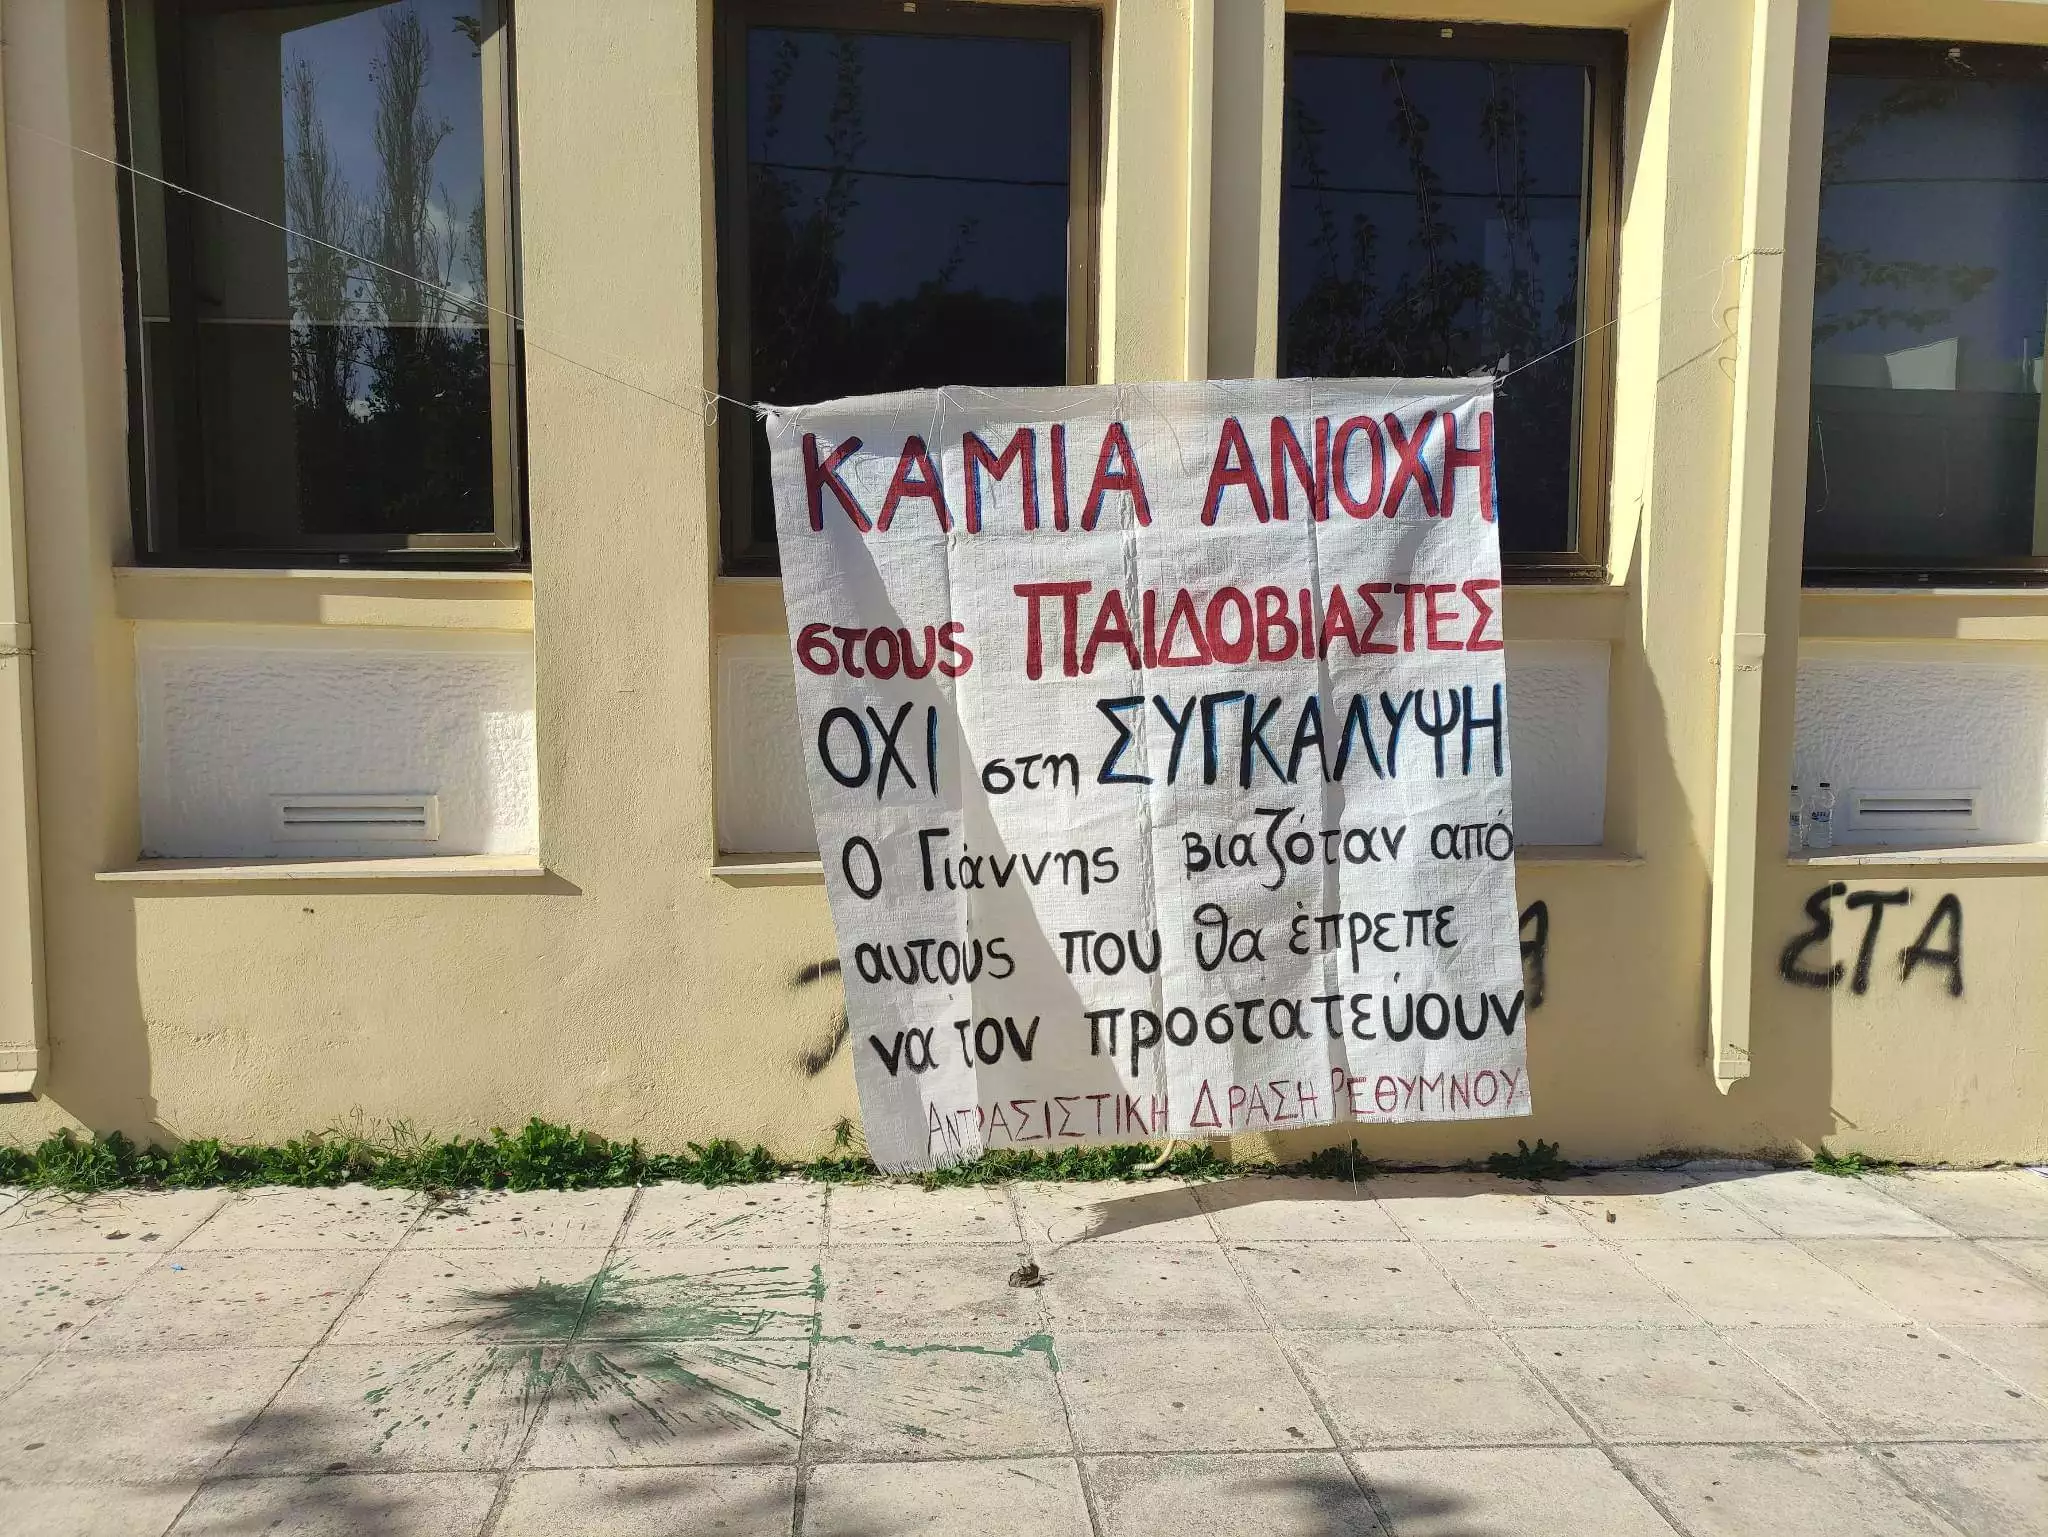 ΚΑΜΙΑ ΑΝΟΧΗ
στους ΠΑΙΔΟΒΙΑΣΤΕΣ
ΟΧΙ στη ΣΥΓΚΑΛΥΨΗ
Ο Γιάννης βιαζόταν από
αυτούς που θα έπρεπε
να τον προστατεύουν
ΑΝΤΙΡΑΣΙΣΤΙΚΗ ΔΡΑΣΗ ΡΕΘΥΜΝΟΥ
ΣΤΑ